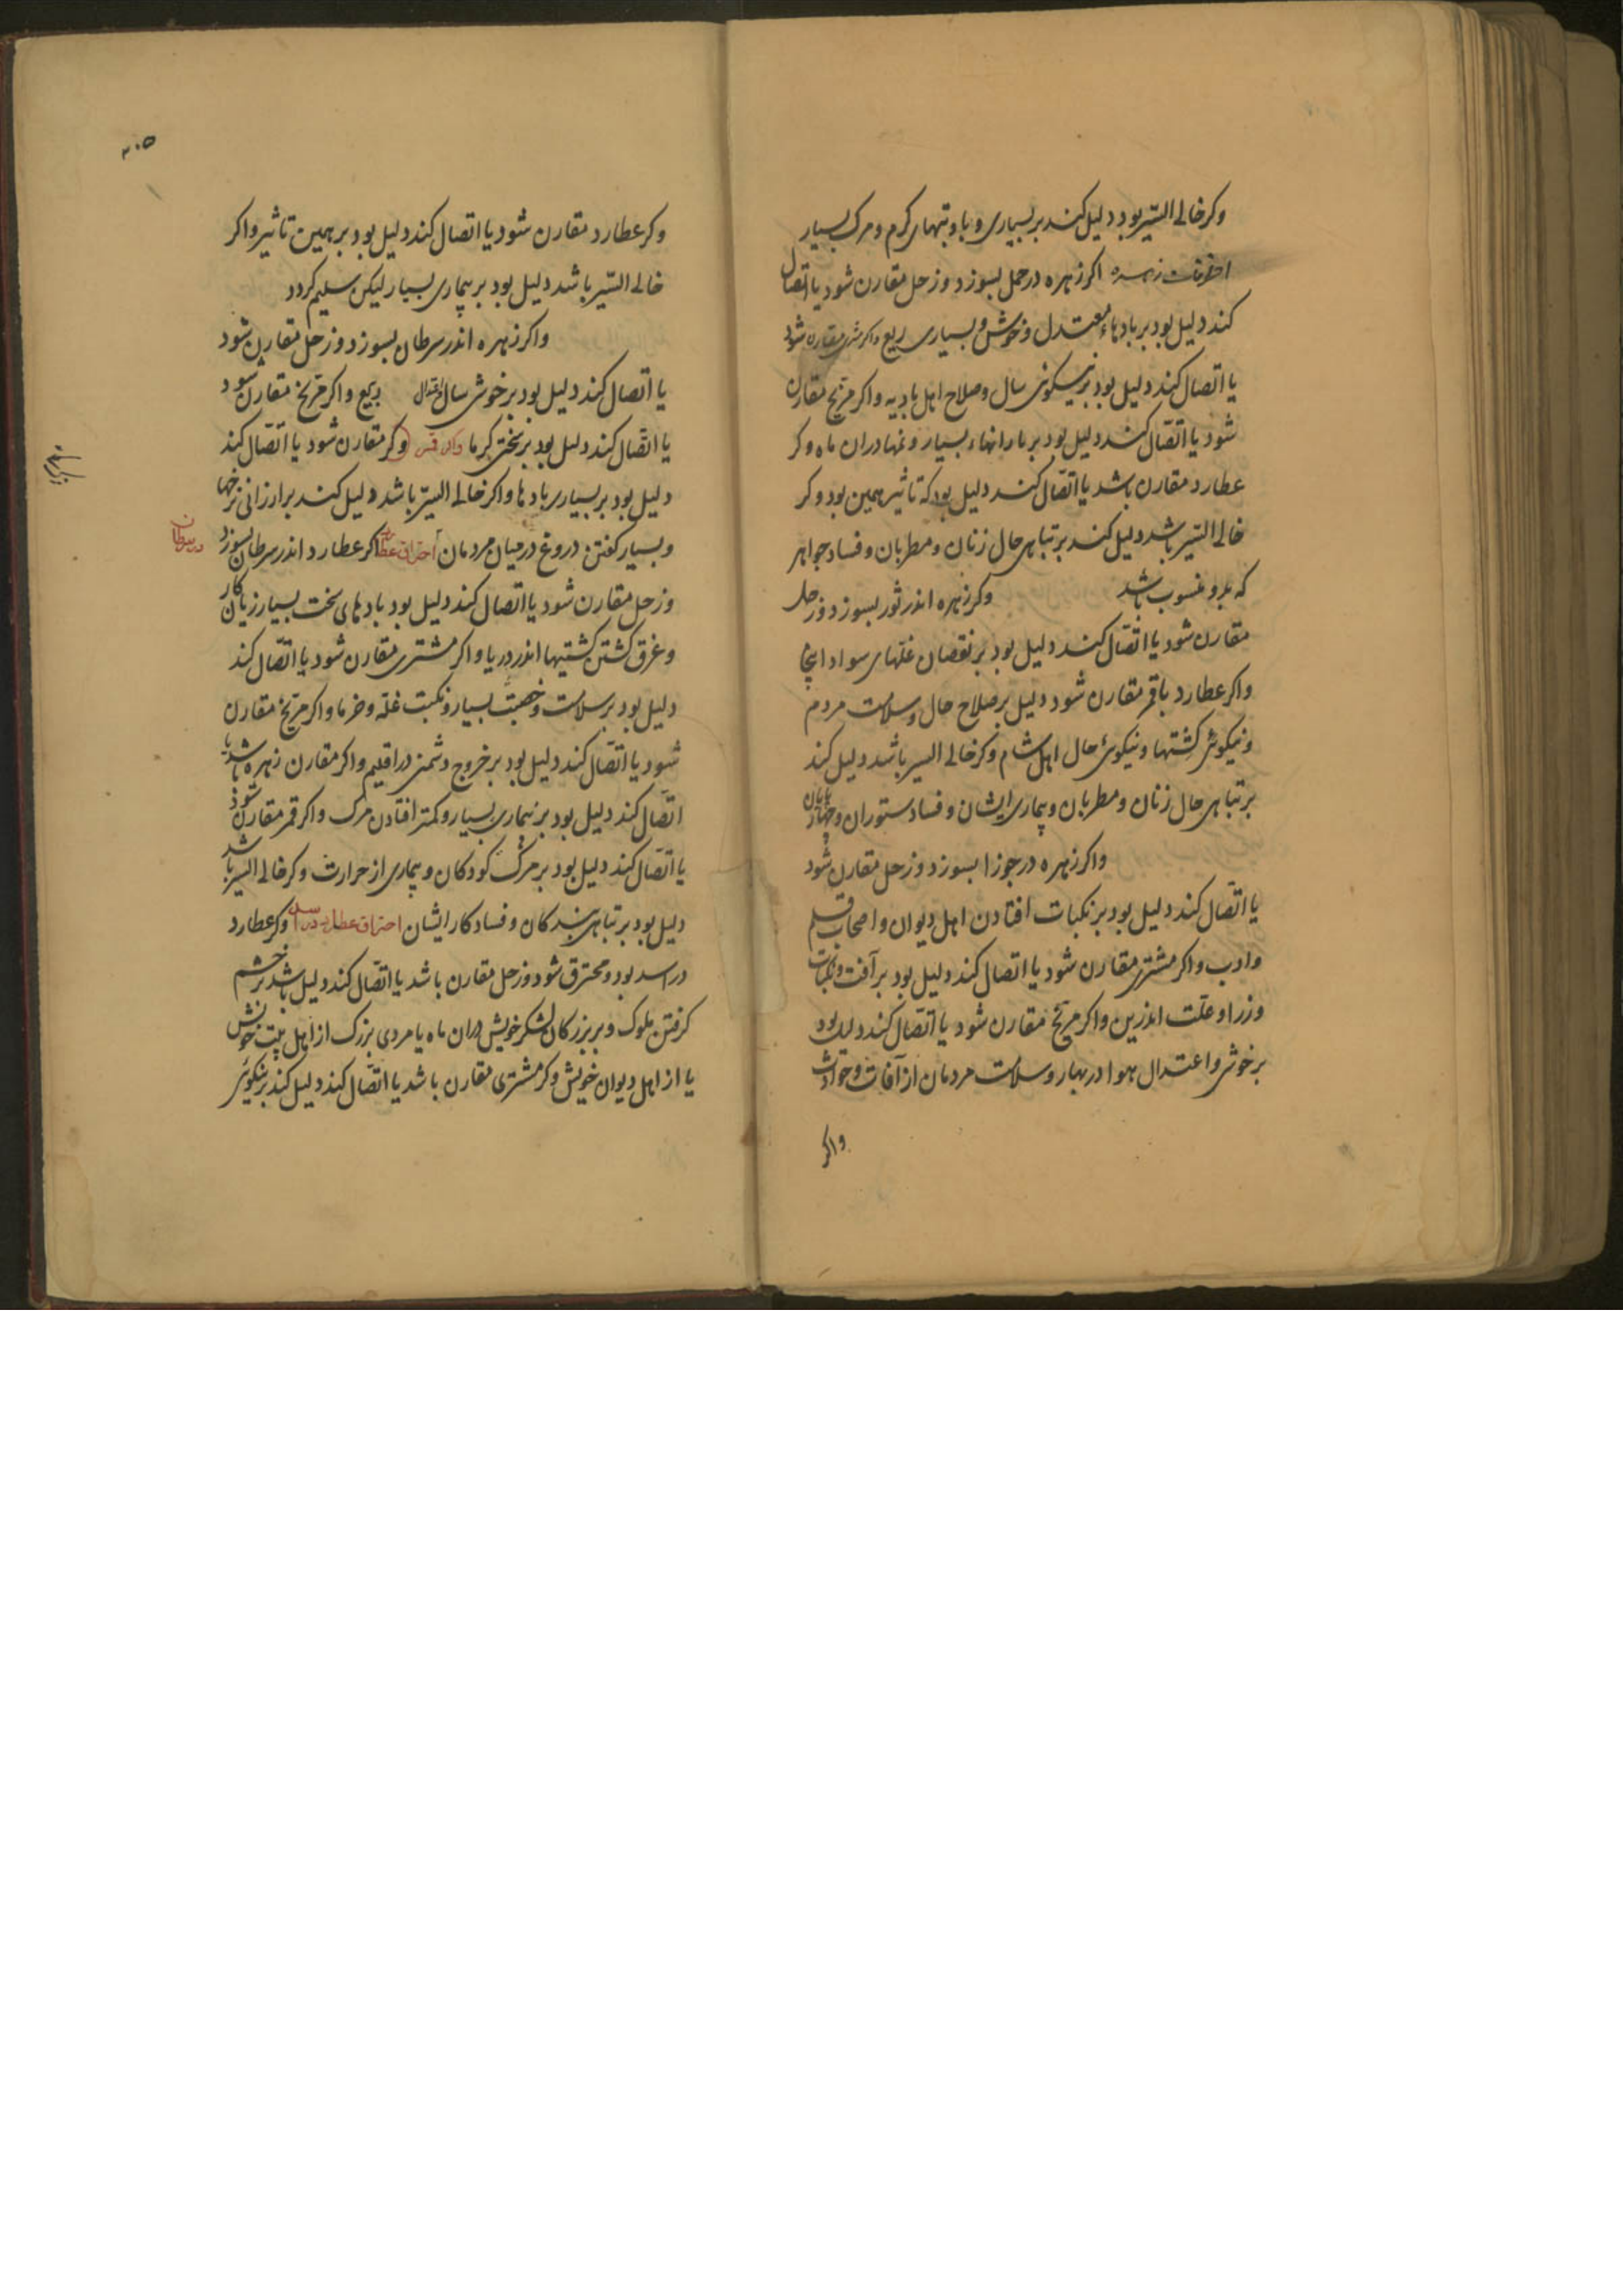 وکر خالی السّیر بود دلیل کند بر بسیاری وبا و تبهای کرم و مرک بسیار
احتراقات زهره اکر زهره در حمل بسوزد و زحل مقارن شود یا اتصال
کند دلیل بود بر بادهاء معتدل و خوش و بسیاری ریع واکر مشتری مقارن شود
یا اتصال کند دلیل بود بر نیکوئی سال و صلاح اهل بادیه و اکر مریخ مقارن
شود یا اتّصال کند دلیل بود بر بارانهاء بسیار و نمها دران ماه وکر
عطارد مقارن باشد یا اتّصال کند دلیل بود که تاثیر همین بود وکر
خالی السّیر باشد دلیل کند بر تباهی حال زنان و مطربان و فساد جواهر
که بدو منسوب باشد وکر زهره اندر ثور بسوزد و زحل
مقارن شود یا اتّصال کند دلیل بود بر نقصان غلّهای سواد
واکر عطارد باقمر مقارن شود دلیل بر صلاح حال و سلامت مردم
و نیکوئی کشتها و نیکوئی حال اهل شام وکر خالی السیر باشد دلیل کند
بر تباهی حال زنان و مطربان و بیماری ایشان و فساد ستوران و چهارپایان
واکر زهره در جوزا بسوزد و زحل مقارن شود
یا اتّصال کند دلیل بود بر نکبات افتادن اهل دیوان و اصحاب قلم
وادب واکر مشتری مقارن شود یا اتصال کند دلیل بود بر آفت و نکبات
وزرا و علّت اندرین واکر مریّخ مقارن شود یا اتّصال کند دلیل بود
بر خوشی و اعتدال هوا در بهار و سلامت مردمان از آفات و حوادث
واکر
۲۰۵
وکر عطارد مقارن شود یا اتصال کند دلیل بود بر همین تاثیر واکر
خالی السّیر باشد دلیل بود بر بیماری بسیار لیکن سلیم کردد
واکر زهره اندر سرطان بسوزد و زحل مقارن شود
یا اتصال کند دلیل بود بر خوشی سال و اعتدال ربیع واکر مریخ مقارن شود
یا اتّصال کند دلیل بود بر سختی کرما واکر قمر وکر مقارن شود یا اتّصال کند
دلیل بود بر بسیاری بادها واکر خالی السیّر باشد دلیل کند بر ارزانی نرخها
و بسیار کفتن دروغ در میان مردمان احتراق عطارد اکر عطارد اندر سرطان بسوزد
در سرطان
و زحل مقارن شود یا اتصال کند دلیل بود بادهای سخت بسیار زیان کار
و غرق کشتن کشتیها اندر دریا واکر مشتری مقارن شود یا اتّصال کند
دلیل بود بر سلامت و خصبت بسیار و نکبت غلّه و خرما واکر مریّخ مقارن
شود یا اتّصال کند دلیل بود بر خروج دشمنی در اقلیم واکر مقارن زهره باشد یا
اتّصال کند دلیل بود بر بیماری بسیار و کمتر افتادن مرک واکر قمر مقارن شود
یا اتّصال کند دلیل بود بر مرک کودکان و بیماری از حرارت وکر خالی السیر باشد
دلیل بود بر تباهی بندکان و فساد کار ایشان احتراق عطارد در اسد وکر عطارد
در اسد بود و محترق شود و زحل مقارن باشد یا اتّصال کند دلیل باشد بر خشم
کرفتن ملوک و بر بزرکان لشکر خویش دران ماه یا مردی بزرک از اهل بیت خویش
یا از اهل دیوان خویش وکر مشتری مقارن باشد یا اتّصال کند دلیل کند بر نیکوئی